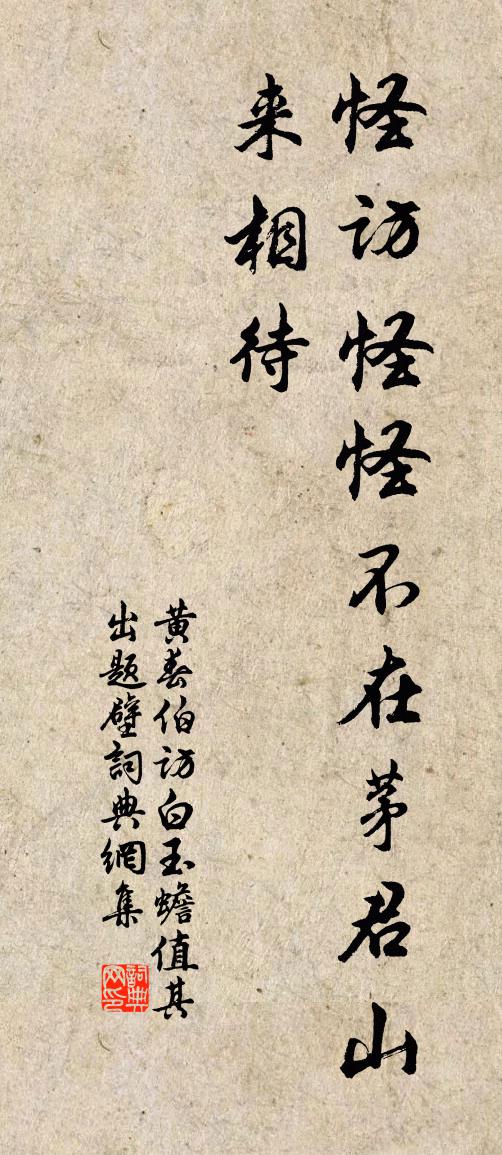 怪访怪怪不在茅君山
来相待
黄春伯访白玉蟾值其
出题壁詞典網集
詞典网印